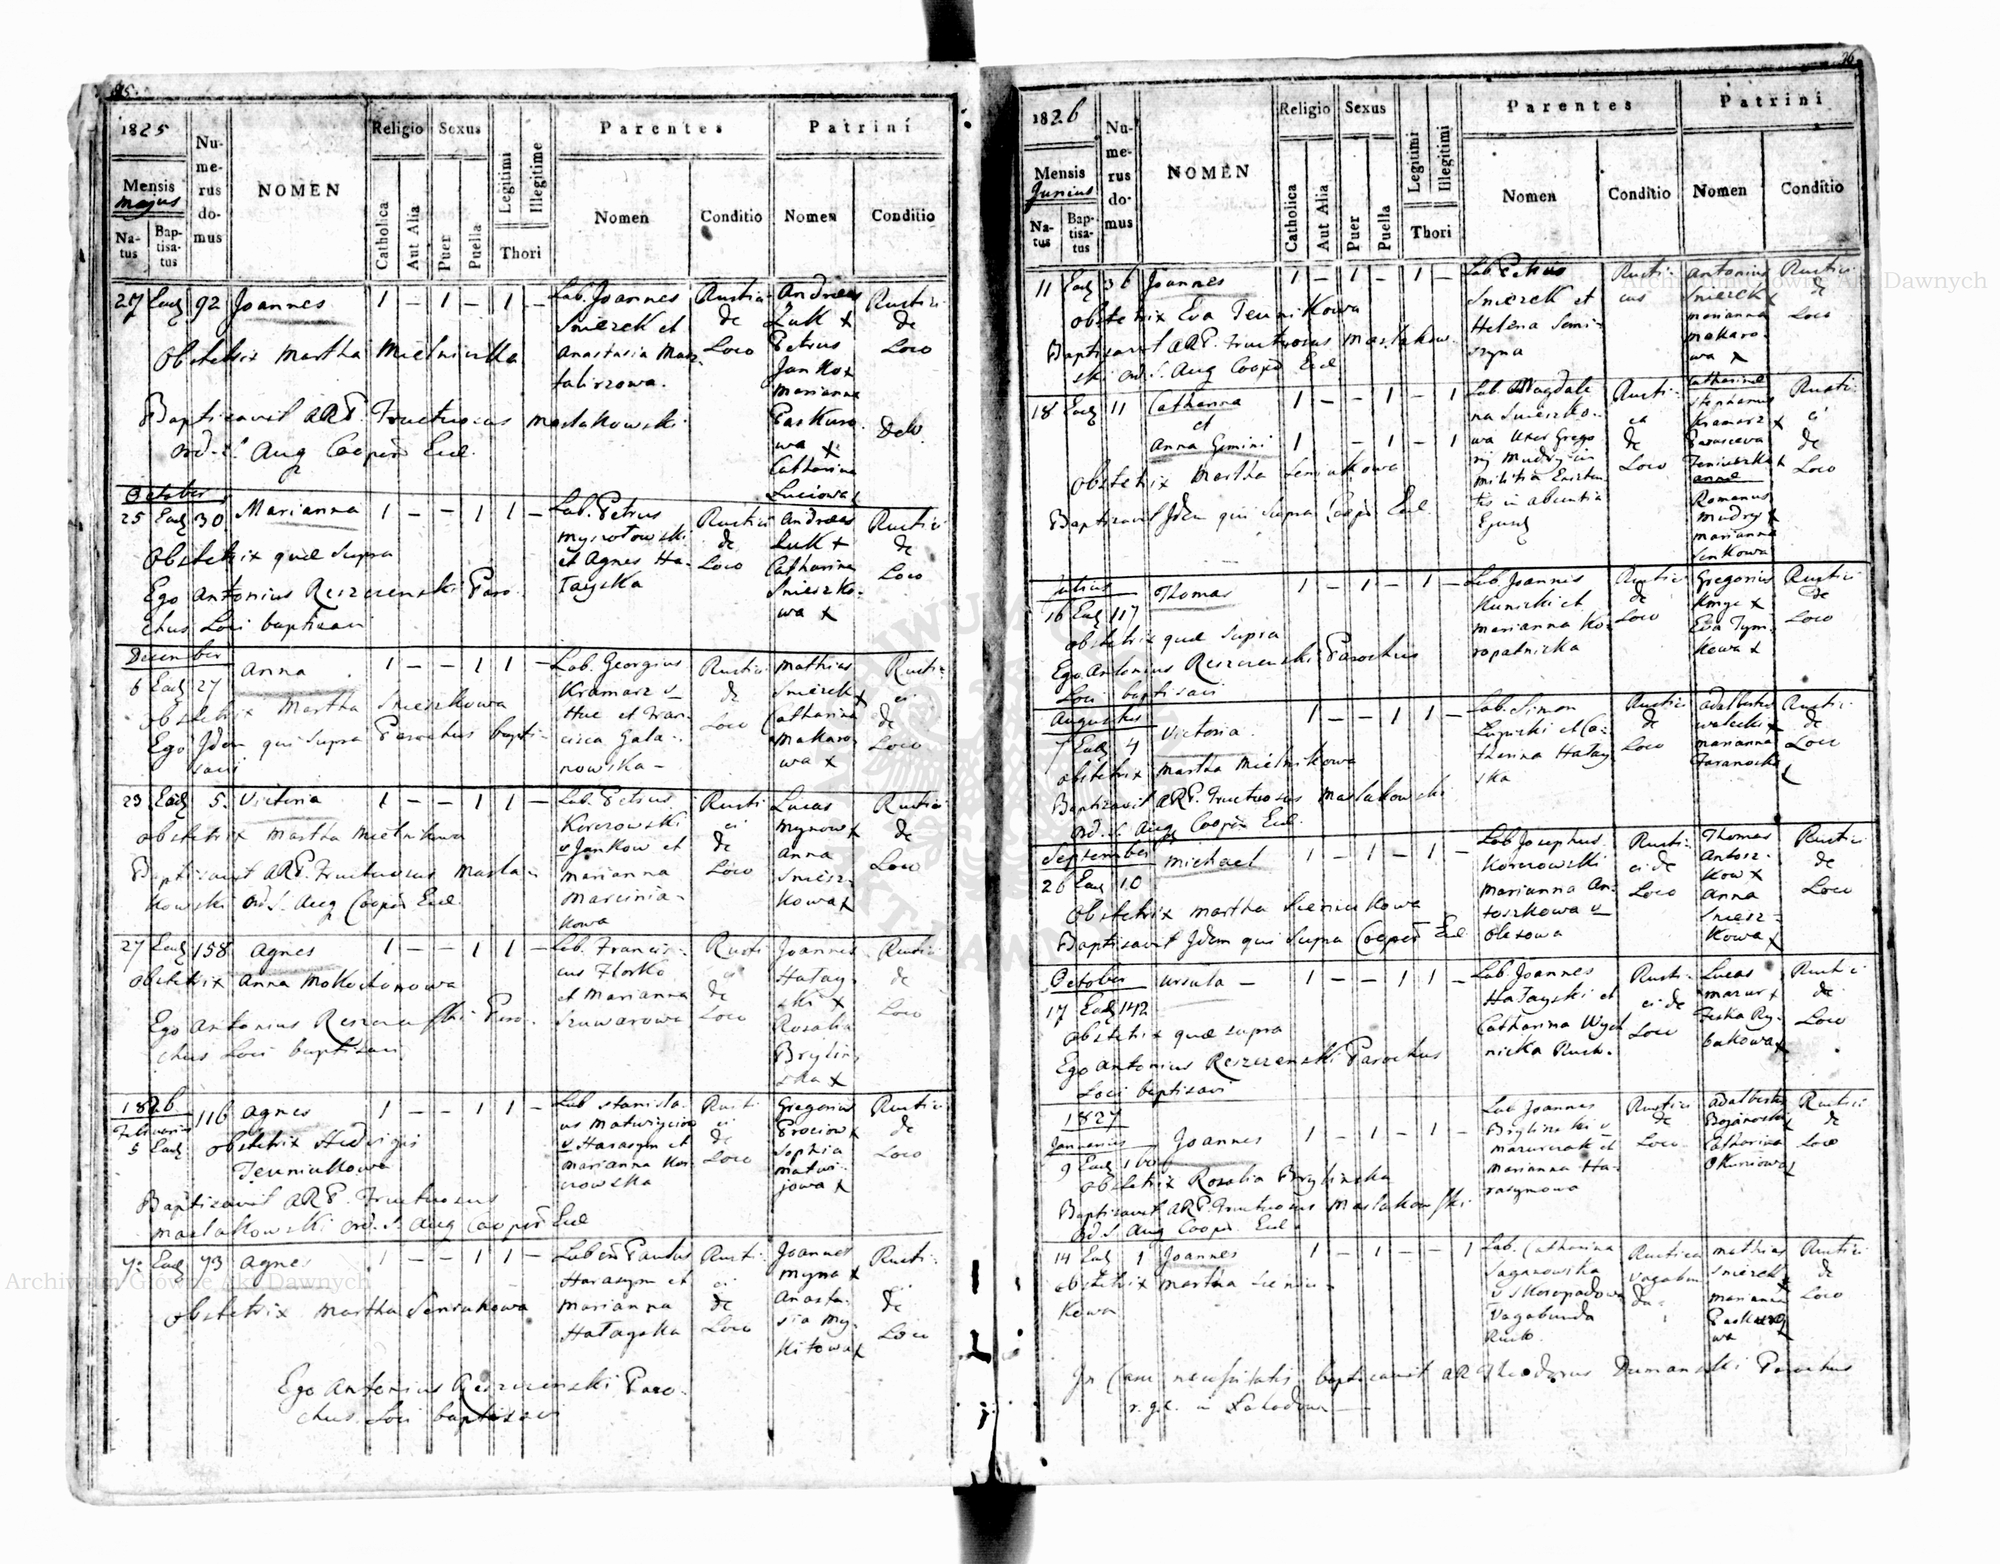 25.
1825
Mensis
majus
Na-
tus
Bap-
tisa-
tus
Nu-
me-
rus
do-
mus
NOMEN
Religio
Catholica
Aut Alia
Sexus
Puer
Puella
Legitimi
Illegitime
Thori
Parentes
Nomen
Conditio
Patrini
Nomen
Conditio
27 Ead 92 Joannes 1 - 1 - 1 -
Obstetrix Martha Mielnicka
Baptisavit ARP. Fructuosus Maslakowski
Ord. S. Aug Cooper Eccl.
Lab. Joannes
Snieszek et
Anastasia
Rustici
de
Loco
Andreas
Luk x
Petrus
Janko x
Marianna
Paskuro
wa x
Catharina
Luciowa x
Rustici
de
Loco
October
25 Ead 30 Marianna 1 - - 1 1 -
Obstetrix quæ supra
Ego Antonius Reszczenski Paro
chus Loci baptisavi
Lab. Petrus
et Agnes Ha-
Tayska
Rustici
de
Loco
Andreas
Luk x
Catharina
Snieszko-
wa x
Rustici
de
Loco
December
6 Ead 27 Anna 1 - - 1 1 -
Obstetrix Martha Snieszkowa
Ego Idem qui supra Parochus bapti-
savi
Lab. Georgius
Kramarz v
Huc et Fran-
cisca Gala-
nowska -
Rustici
de
Loco
Mathias
Snieszek x
Catharina
Makaro
wa x
Rusti-
ci
de
Loco
23 Ead 5. Victoria 1 - - 1 1 -
Obstetrix Martha Mielnikowa
Baptisavit ARP. Fructuosus Masla-
kowski Ord S. Aug Cooper Eccl.
Lab. Petrus
Korczowski
v Jankow et
Marianna
Marcinia-
kowa
Rusti
ci
de
Loco
Lucas
Mynow x
Anna
Sniesz-
kowa x
Rustici
de
Loco
27 Ead 158 Agnes 1 - - 1 1 -
Obstetrix Anna Mokochonowa
Ego Antonius Reszczenski Paro-
chus Loci baptisavi
Lab. Francis-
cus Florko
et Marianna
Szuwarowa
Rusti
ci
de
Loco
Joannes
Hatay-
ski x
Rosalia
Brylin
ska x
Rustici
de
Loco
1826
Februarius
5 Ead 116 Agnes 1 - - 1 1 -
Obstetrix Hedvigis
Teuniukowa
Baptisavit ARP. Fructuosus
Maslakowski Ord. S. Aug Cooper Eccl
Lab Stanisla-
us
v Harasym et
Marianna Kor-
czowska
Rusti
ci
de
Loco
Gregorius
Prociow x
Sophia
Matwi-
jowa x
Rustici
de
Loco
7. Ead 73 Agnes 1 - - 1 1 -
Obstetrix Martha Seniukowa
Ego Antonius Reszczenski Paro-
chus Loci baptisavi
Paulus
Harasym et
Marianna
Hatayska
Rusti-
ci
de
Loco
Joannes
Myna x
Anasta-
sia My-
kitowa x
Rusti-
ci
de
Loco
26
1826
Mensis
Junius
Na-
tus
Bap-
tisa-
tus
Nu-
me-
rus
do-
mus
NOMEN
Religio
Catholica
Aut Alia
Sexus
Puer
Puella
Legitimi
Illegitimi
Thori
Parentes
Nomen
Conditio
Patrini
Nomen
Conditio
11 Ead 36 Joannes 1 - 1 - 1 -
Obstetrix Eva Teuniukowa
Baptisavit ARP. Fructuosus Maslakow-
ski Ord. S. Aug Cooper Eccl
Lab. Petrus
Snieszek et
Helena Semi-
szyna
Rusti-
cus
Antonius
Snieszek x
Marianna
Makaro-
wa x
Rustici
de
Loco
18 Ead 11 Catharina 1 - - 1 - 1
et
Anna Gemini 1 - 1 - 1
Obstetrix Martha Seniukowa
Baptisavit Idem qui supra Cooper Eccl.
Lab. Magdale
na Snieszko-
wa Uxor Grego
rij Mudry in
militia Existen
tis in absentia
Ejusd
Rusti-
ca
de
Loco
Catharinæ
Stephanus
Kramarz x
Parasceva
Teniuszka x
Annæ
Romanus
Mudry x
Marianna
Senkowa
Rusti
ci
de
Loco
Julius
16 Ead 117 Thomas 1 - 1 - 1 -
Obstetrix quæ supra
Ego Antonius Reszczenski Parochus
Loci baptisavi
Lab. Joannes
Kunicki et
Marianna Ko-
ropatnicka
Rustici
de
Loco
Gregorius
Kmyc x
Eva Tym-
kowa x
Rustici
de
Loco
Augustus
7 Ead 4 Victoria 1 - - 1 1 -
Obstetrix Martha Mielnikowa
Baptisavit ARP. Fructuosus Maslakowski
Ord. S. Aug Cooper Eccl.
Lab. Simon
et Ca-
tharina Hatay
ska
Rustici
de
Loco
Adalbertus
Walecki x
Marianna
Rustici
de
Loco
September
26 Ead 10 Michael 1 - 1 - 1 -
Obstetrix Martha Sieniukowa
Baptisavit Idem qui supra Cooper Eccl
Lab Josephus
Korczowski
Marianna An-
toszkowa v
Olexowa
Rusti-
ci de
Loco
Thomas
Antosz-
kow x
Anna
Sniesz-
kowa x
Rustici
de
Loco
October
17 Ead 142 Ursula - 1 - - 1 1 -
Obstetrix quæ supra
Ego Antonius Reszczenski Parochus
Loci baptisavi
Lab. Joannes
Hatayski et
Catharina Wych
nicka Ruth.
Rusti-
ci de
Loco
Lucas
Mazur x
Feska Ry-
bakowa x
Rustici
de
Loco
1827
Januarius
9 Ead 160 Joannes 1 - 1 - 1 -
Obstetrix Rosalia Brylinska
Baptisavit ARP. Fructuosus Maslakowski
Ord S. Aug Cooper. Eccl.
Lab Joannes
Brylinski v
Mazurczak et
Marianna Ha-
rasymowa
Rustici
de
Loco
Adalbertus
Bojanowski x
Catharina
Okuniowa x
Rustici
de
Loco
14 Ead 1 Joannes 1 - 1 - - 1
Obstetrix Martha Seniu-
kowa
Lab. Catharina
Saganowska
v Skoropadowa
Vagabunda
Ruth.
Rustica
Vagabun
da.
Mathias
Snieszek x
Marianna
Paskuro
wa x
Rustici
de
Loco
In Casu necessitatis baptisavit AR Theodorus Dumanski Parochus
r. g. c. in Zahodowa
Archiwum Główne Akt Dawnych
Archiwum Główne Akt Dawnych